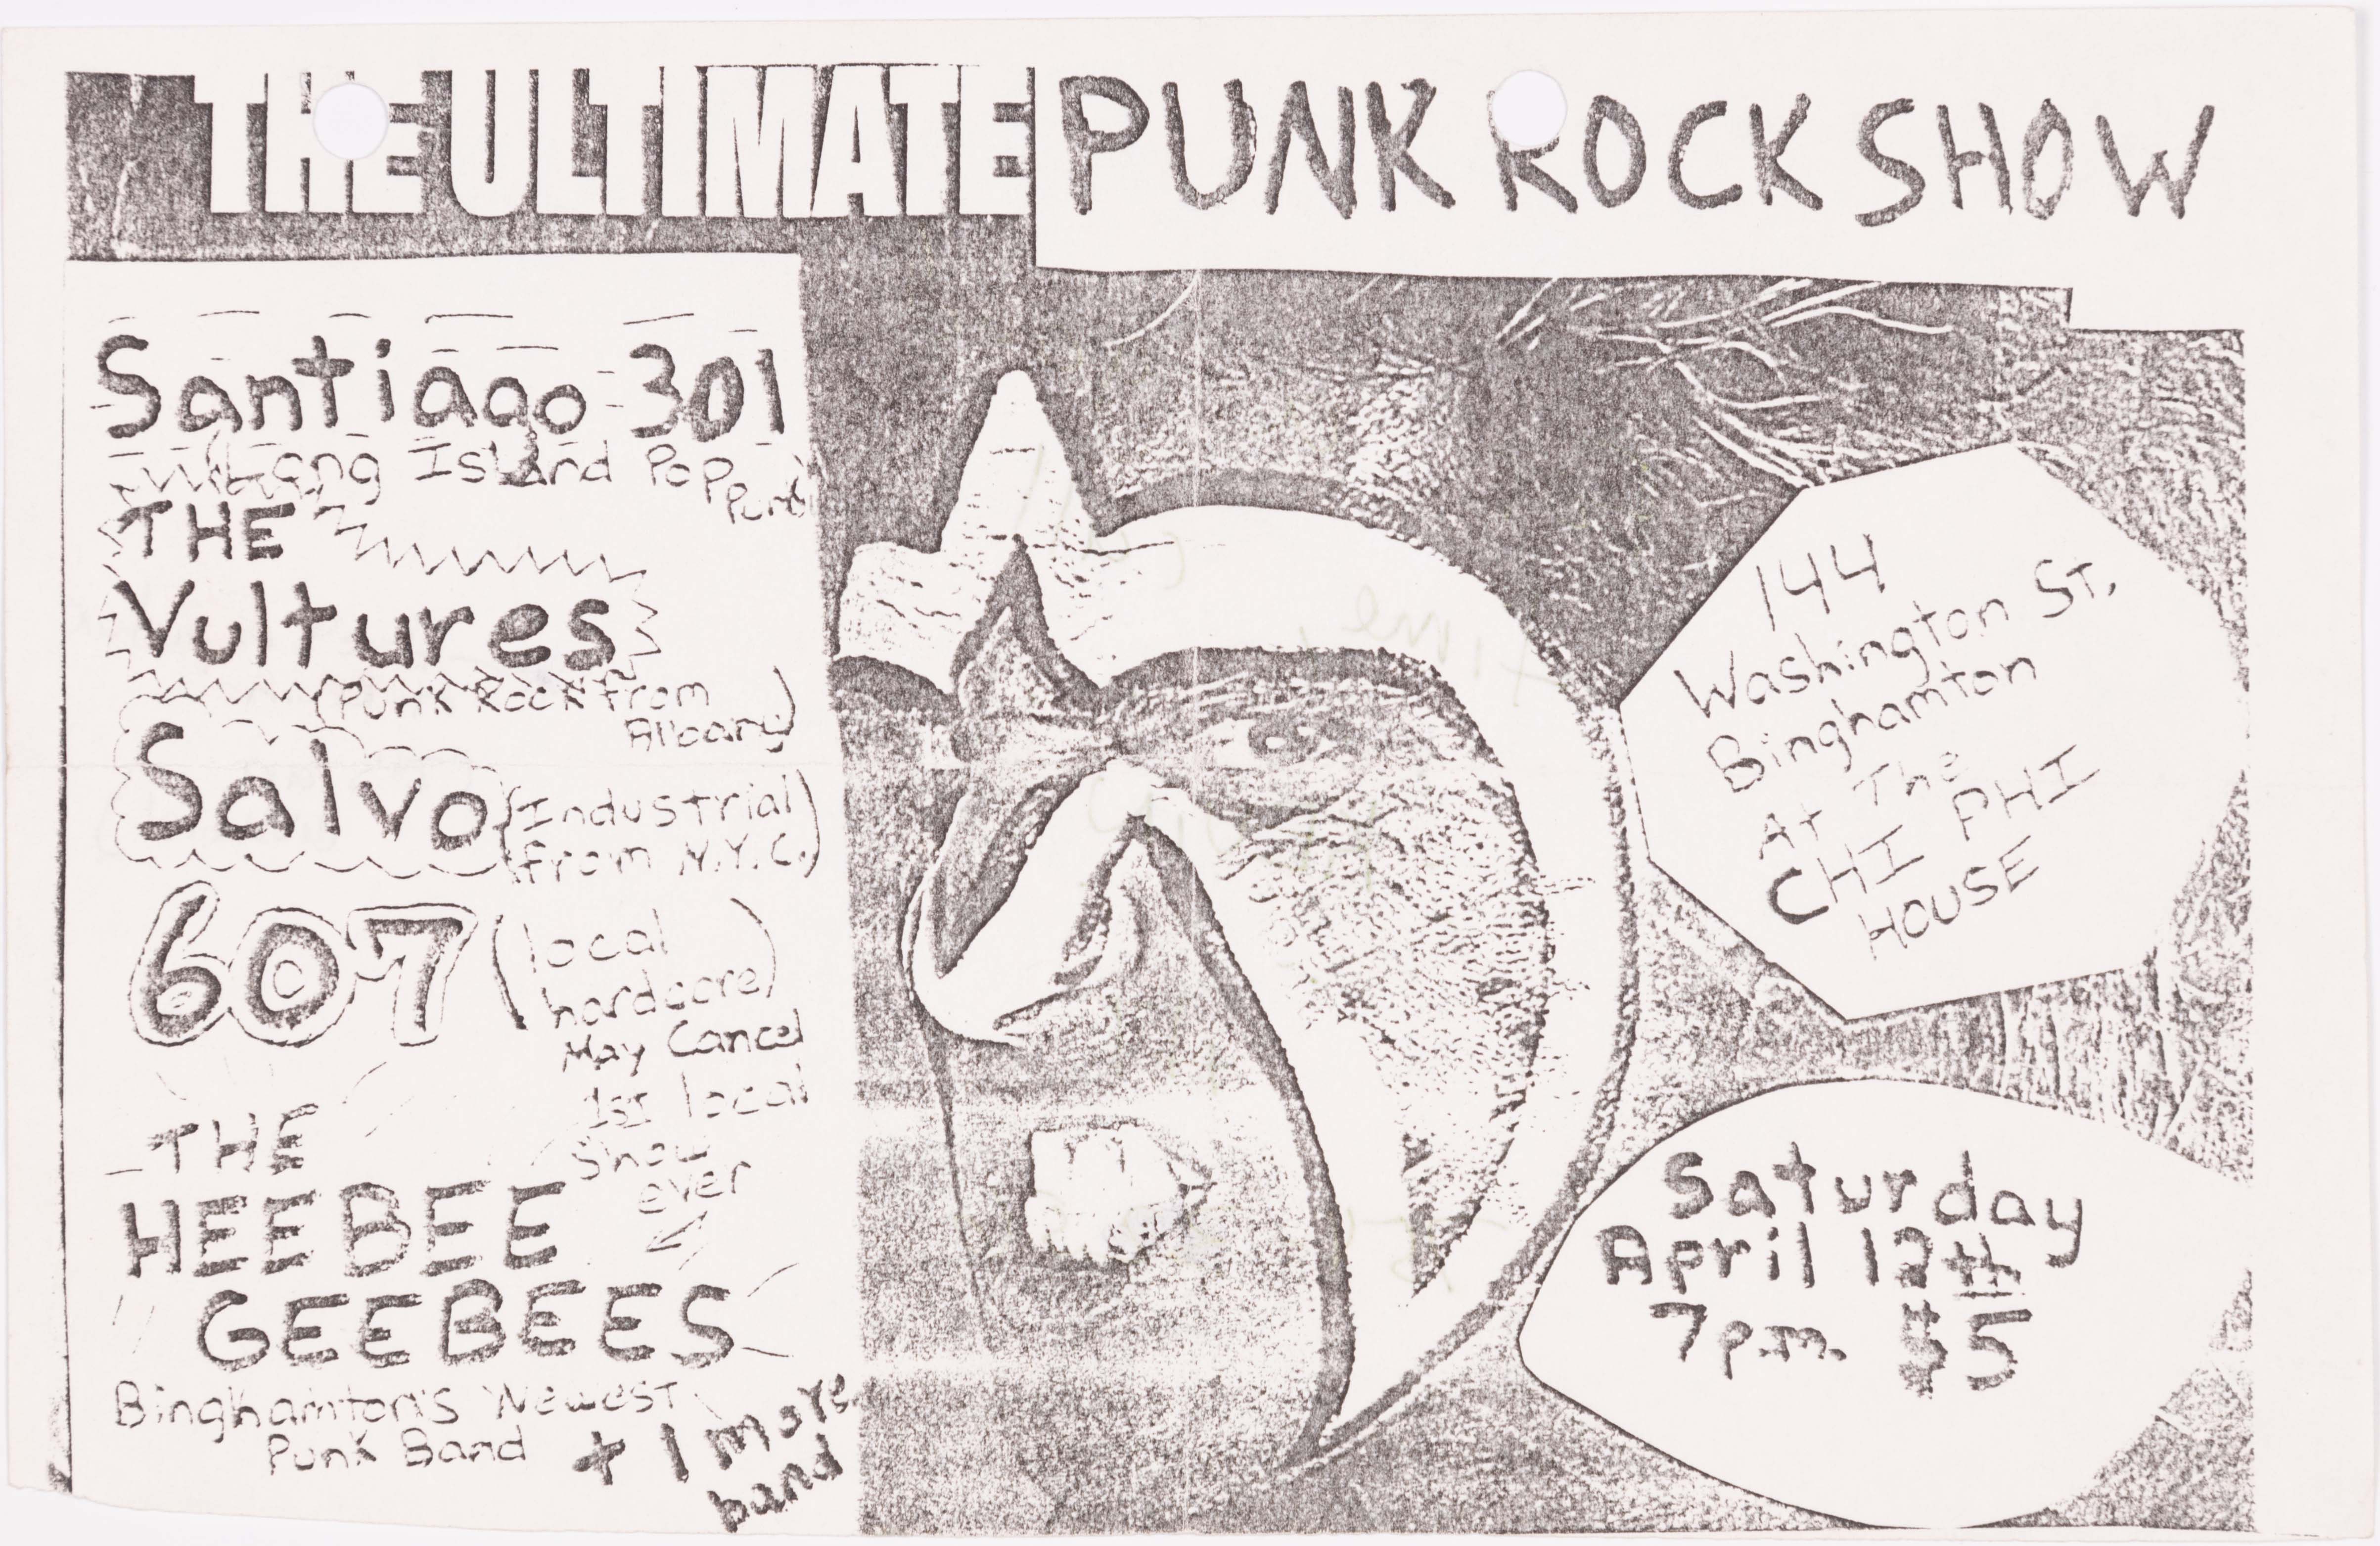 THE ULTIMATE PUNK ROCK SHOW
Santiago 301
Long Island Pop
Punk
THE
Vultures
(Punk Rock from
Albany)
Salvo (Industrial
from N.Y.C.)
607 (local
hardcore)
May Cancel
1st local
Show
ever
THE
HEEBEE
GEEBEES
Binghamton's Newest
Punk Band
+ 1 more
band
144
Washington St.
Binghamton
At The
CHI PHI
HOUSE
Saturday
April 12th
7 p.m. $5